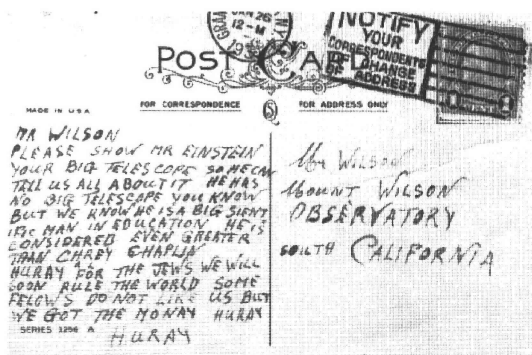 JAN 26
12-M
19
NOTIFY
YOUR
CORRESPONDENTS
OF CHANGE
OF ADDRESS
POST CARD
MADE IN U.S.A
FOR CORRESPONDENCE
FOR ADDRESS ONLY
MR WILSON
PLEASE SHOW MR EINSTEIN
YOUR BIG TELESCOPE SO HE CAN
TELL US ALL ABOUT IT HE HAS
NO BIG TELESCAPE YOU KNOW
BUT WE KNOW HE IS A BIG SIENT
IFIC MAN IN EDUCATION HE IS
CONSIDERED EVEN GREATER
THAN CHREY CHAPLIN
HURAY FOR THE JEWS WE WILL
SOON RULE THE WORLD SOME
FELOWS DO NOT LIKE US BUT
WE GOT THE MONAY HURAY
HURAY
SERIES 1256 A
Mr WILSON
MOUNT WILSON
OBSERVATORY
SOUTH CALIFORNIA